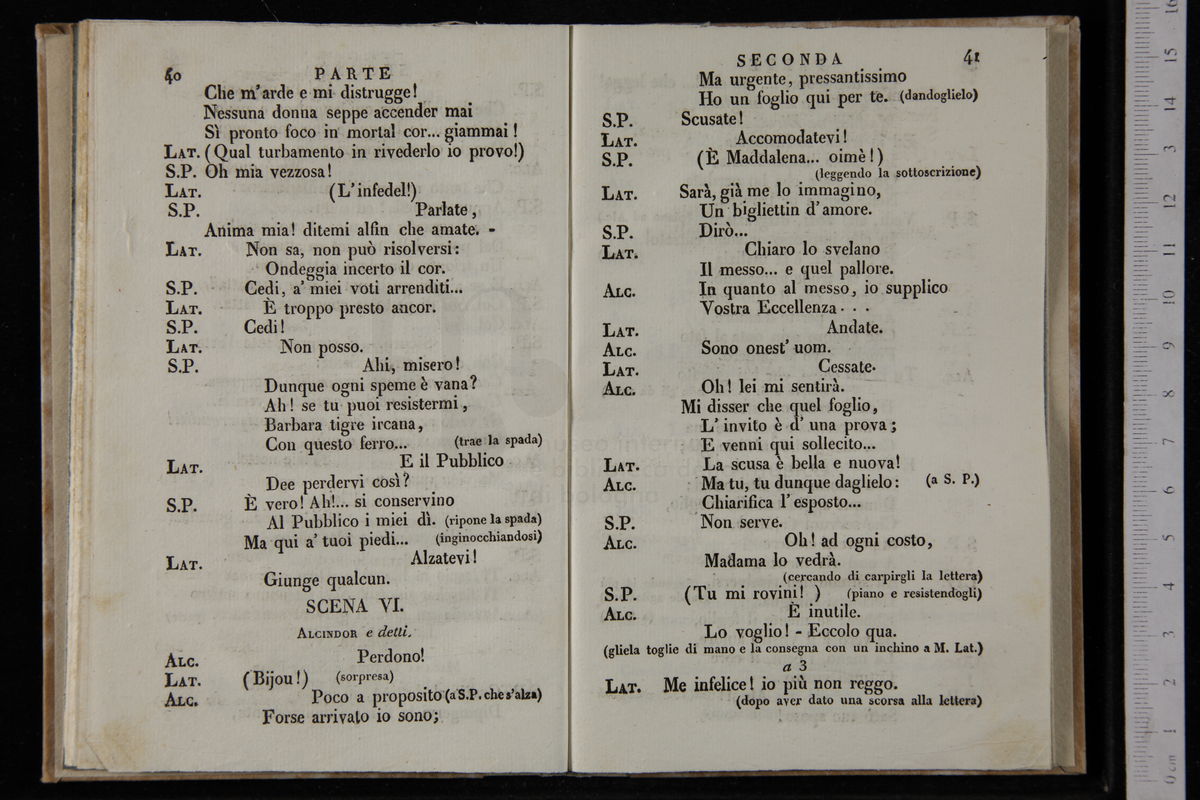 40
PARTE
Che m'arde e mi distrugge!
Nessuna donna seppe accender mai
Sì pronto foco in mortal cor... giammai!
LAT. (Qual turbamento in rivederlo io provo!)
S.P. Oh mia vezzosa!
LAT. (L'infedel!)
S.P. Parlate,
Anima mia! ditemi alfin che amate. -
LAT. Non sa, non può risolversi:
Ondeggia incerto il cor.
S.P. Cedi, a' miei voti arrenditi...
LAT. È troppo presto ancor.
S.P. Cedi!
LAT. Non posso.
S.P. Ahi, misero!
Dunque ogni speme è vana?
Ah! se tu puoi resistermi,
Barbara tigre ircana,
Con questo ferro... (trae la spada)
LAT. E il Pubblico
Dee perdervi così?
S.P. È vero! Ah!... si conservino
Al Pubblico i miei dì. (ripone la spada)
Ma qui a' tuoi piedi... (inginocchiandosi)
LAT. Alzatevi!
Giunge qualcun.
SCENA VI.
ALCINDOR e detti.
ALC. Perdono!
LAT. (Bijou!) (sorpresa)
ALC. Poco a proposito (a S.P. che s'alza)
Forse arrivato io sono;
SECONDA
41
Ma urgente, pressantissimo
Ho un foglio qui per te. (dandoglielo)
S.P. Scusate!
LAT. Accomodatevi!
S.P. (È Maddalena... oimè!)
(leggendo la sottoscrizione)
LAT. Sarà, già me lo immagino,
Un bigliettin d'amore.
S.P. Dirò...
LAT. Chiaro lo svelano
Il messo... e quel pallore.
ALC. In quanto al messo, io supplico
Vostra Eccellenza . . .
LAT. Andate.
ALC. Sono onest' uom.
LAT. Cessate.
ALC. Oh! lei mi sentirà.
Mi disser che quel foglio,
L' invito è d' una prova;
E venni qui sollecito...
LAT. La scusa è bella e nuova!
ALC. Ma tu, tu dunque daglielo: (a S. P.)
Chiarifica l' esposto...
S.P. Non serve.
ALC. Oh! ad ogni costo,
Madama lo vedrà.
(cercando di carpirgli la lettera)
S.P. (Tu mi rovini! ) (piano e resistendogli)
ALC. È inutile.
Lo voglio! - Eccolo qua.
(gliela toglie di mano e la consegna con un inchino a M. Lat.)
a 3
LAT. Me infelice! io più non reggo.
(dopo aver dato una scorsa alla lettera)